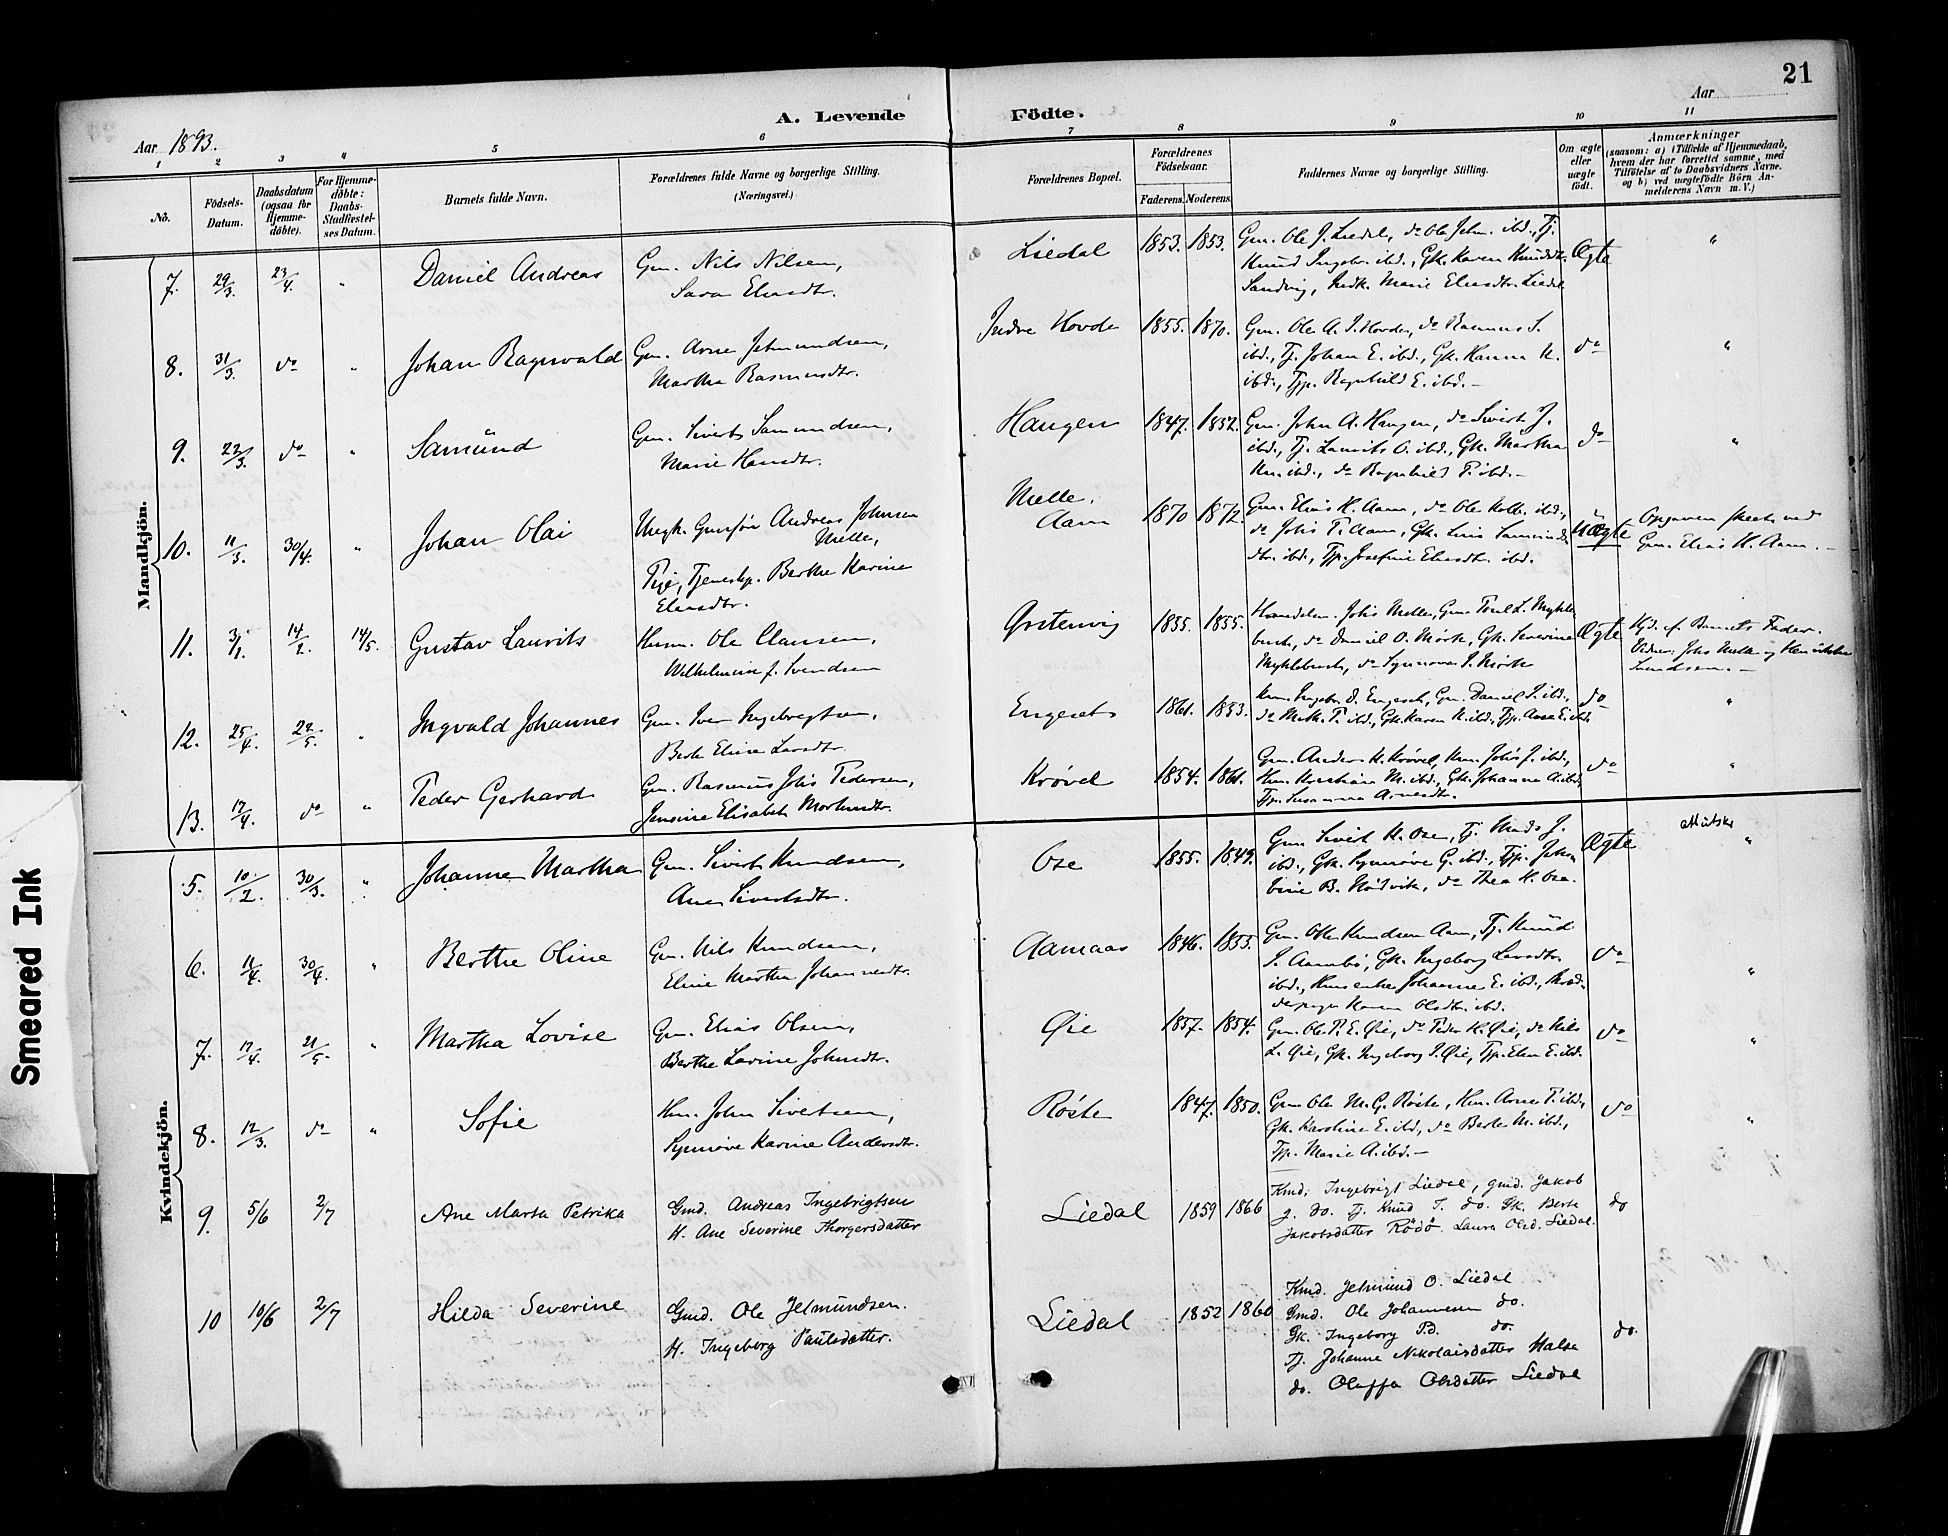 21
A. Levende Födte.
Aar 1893.
Aar
1 2 3 4 5 6 7 8 9 10 11
No.
Födsels-Datum.
Daabsdatum (ogsaa for Hjemme-döbte).
For Hjemme-döbte: Daabs-Stadfæstel-ses Datum.
Barnets fulde Navn.
Forældrenes fulde Navne og borgerlige Stilling. (Næringsvei.)
Forældrenes Bopæl.
Forældrenes Födselsaar.
Faderens. Moderens.
Faddernes Navne og borgerlige Stilling.
Om ægte eller uægte födt.
Anmærkninger
(saasom: a) i Tilfælde af Hjemmedaab, hvem der har forrettet samme, med Tilföielse af to Daabsvidners Navne, og b) ved uægtefödte Börn An-melderens Navn m. V.)
Mandkjön.
7. 29/3. 23/4. " Daniel Andreas Gm. Nils Nilsen, Liedal 1853. 1853. Gm. Ole J. Liedal, do Ole John. ibd., Tj. Ægte "
Sara Eliasdtr. Knud Ingebr. ibd., Gk. Karen Knudsdtr.
Sandvig, Marie Eliasdtr. Liedal
8. 31/3. do " Johan Ragnvald Gm. Arne Jetmundsen, Indre Hovde 1855. 1870. Gm. Ole A. I. Hovden, do Rasmus S. do "
Martha Rasmusdtr. ibd., Tj. Johan E. ibd., Gk. Hanna K.
ibd., Tjp. Ragnhild E. ibd.-
9. 22/3. do " Samünd Gm. Sivert Samundsen, Haugen 1847. 1852. Gm. John A. Haugen, do Sivert J. do "
Marie Hansdtr. ibd., Tj. Laurits O. ibd., Gk. Martha
Kn. ibd., do Ragnhild P. ibd.-
10. 11/3. 30/4. " Johan Olai Ungk. Gmsøn Andreas Johnsen Melle, Melle. Aam 1870 1872. Gm. Elias K. Aam, do Ole Kolb. ibd., Uægte Opgaven skeet ved
Pige, Tjenestp. Berthe Karine do Johs P. Aam, Gk. Lina Samunds Gm. Elias K. Aam.-
Eliasdtr. dtr. ibd., Tjp. Josefine Eliasdtr. ibd.
11. 3/1. 14/2. 14/5. Gustav Laurits Husm. Ole Clausen, 1835. 1855. Handelsm. Johs Melle, Gm. Poul L. Mykle Ægte Hjd. af Barnets Fader.
Wilhelmine f. Svendsen bust, do Daniel O. Mork, Gk. Severine Vidner: Johs Melle og
Myklebust, do Synnøve I. Mork
12. 25/4. 22/5. " Ingvald Johannes Gm. Iver Ingebregtsen, Engeset 1861. 1853. Engeset, Gm. Daniel I. ibd., do "
Berte Eline Larsdtr. do P. ibd., Gk. Karen K. ibd., Tjp. Anne E. ibd.
13. 17/4. do " Peder Gerhard Gm. Rasmus Johs Pedersen, Krøvel 1854. 1861. Gm. Anders K. Krøvel, Km. Johs J. ibd., do "
Jensine Elisabet Mortensdtr. Km. Kristian M. ibd., Gk. Johanne A. ibd.
Tjp. Susanna Arnesdtr.
Kvindekjön.
5. 10/2. 30/3. " Johanne Martha Gm. Sivert Knudsen, Ose 1855. 1849. Gm. Sivert K. Ose, Tj. Mads J. Ægte "
Ane Sivertsdtr. ibd., Gk. Synnøve G. ibd., Tjp. Jako
bine B. Nødvik, do Thea K. Ose.
6. 11/4. 30/4. " Berthe Oline Gm. Nils Knudsen, Aamaas 1846. 1855. Gm. Ole Knudsen Aam, Tj. Knud do "
Eline Martha Johannesdtr. I. Aambø, Gk. Ingeborg Larsdtr.
ibd., Johanne E. ibd.,
Karen Olsdtr. ibd.
7. 17/4. 21/5. " Martha Lovise Gm. Elias Olsen, Øie 1857. 1854. Gm. Ole P. E. Øie, do Peder K. Øie, do Nils do "
Berthe Lavine Johnsdtr. L. Øie, Gk. Ingeborg I. Øie, Tjp. Elen E. ibd.
8. 12/3. do " Sofie Km. John Sivertsen, Røste 1847. 1850. Gm. Ole M. G. Røste, Km. Arne P. ibd., do "
Synnøve Karine Andersdtr. Gk. Karoline E. ibd., do Berte M. ibd.,
Tjp. Marie A. ibd.-
9. 5/6 2/7 Ane Marta Petrika Gmd. Andreas Ingebrigtsen Liedal 1859 1866 Kmd. Ingebrigt Liedal, gmd. Jakob do
H. Ane Severine Thorgersdatter J. do. Tj. Knud I. do. Gk. Berte
Jakobsdatter Rödö. Laura Olsd. Liedal.
10 10/6 2/7 Hilda Severine Gmd. Ole Jetmundsen. Liedal 1852 1860 Kmd. Jetmund O. Liedal do.
H. Ingeborg Paulsdatter. Gmd. Ole Johannesen do.
Gk. Ingeborg P.d. do.
Tj. Johanne Nikolaisdatter Halse
do. Oluffa Olsdatter Liedal
Smeared Ink